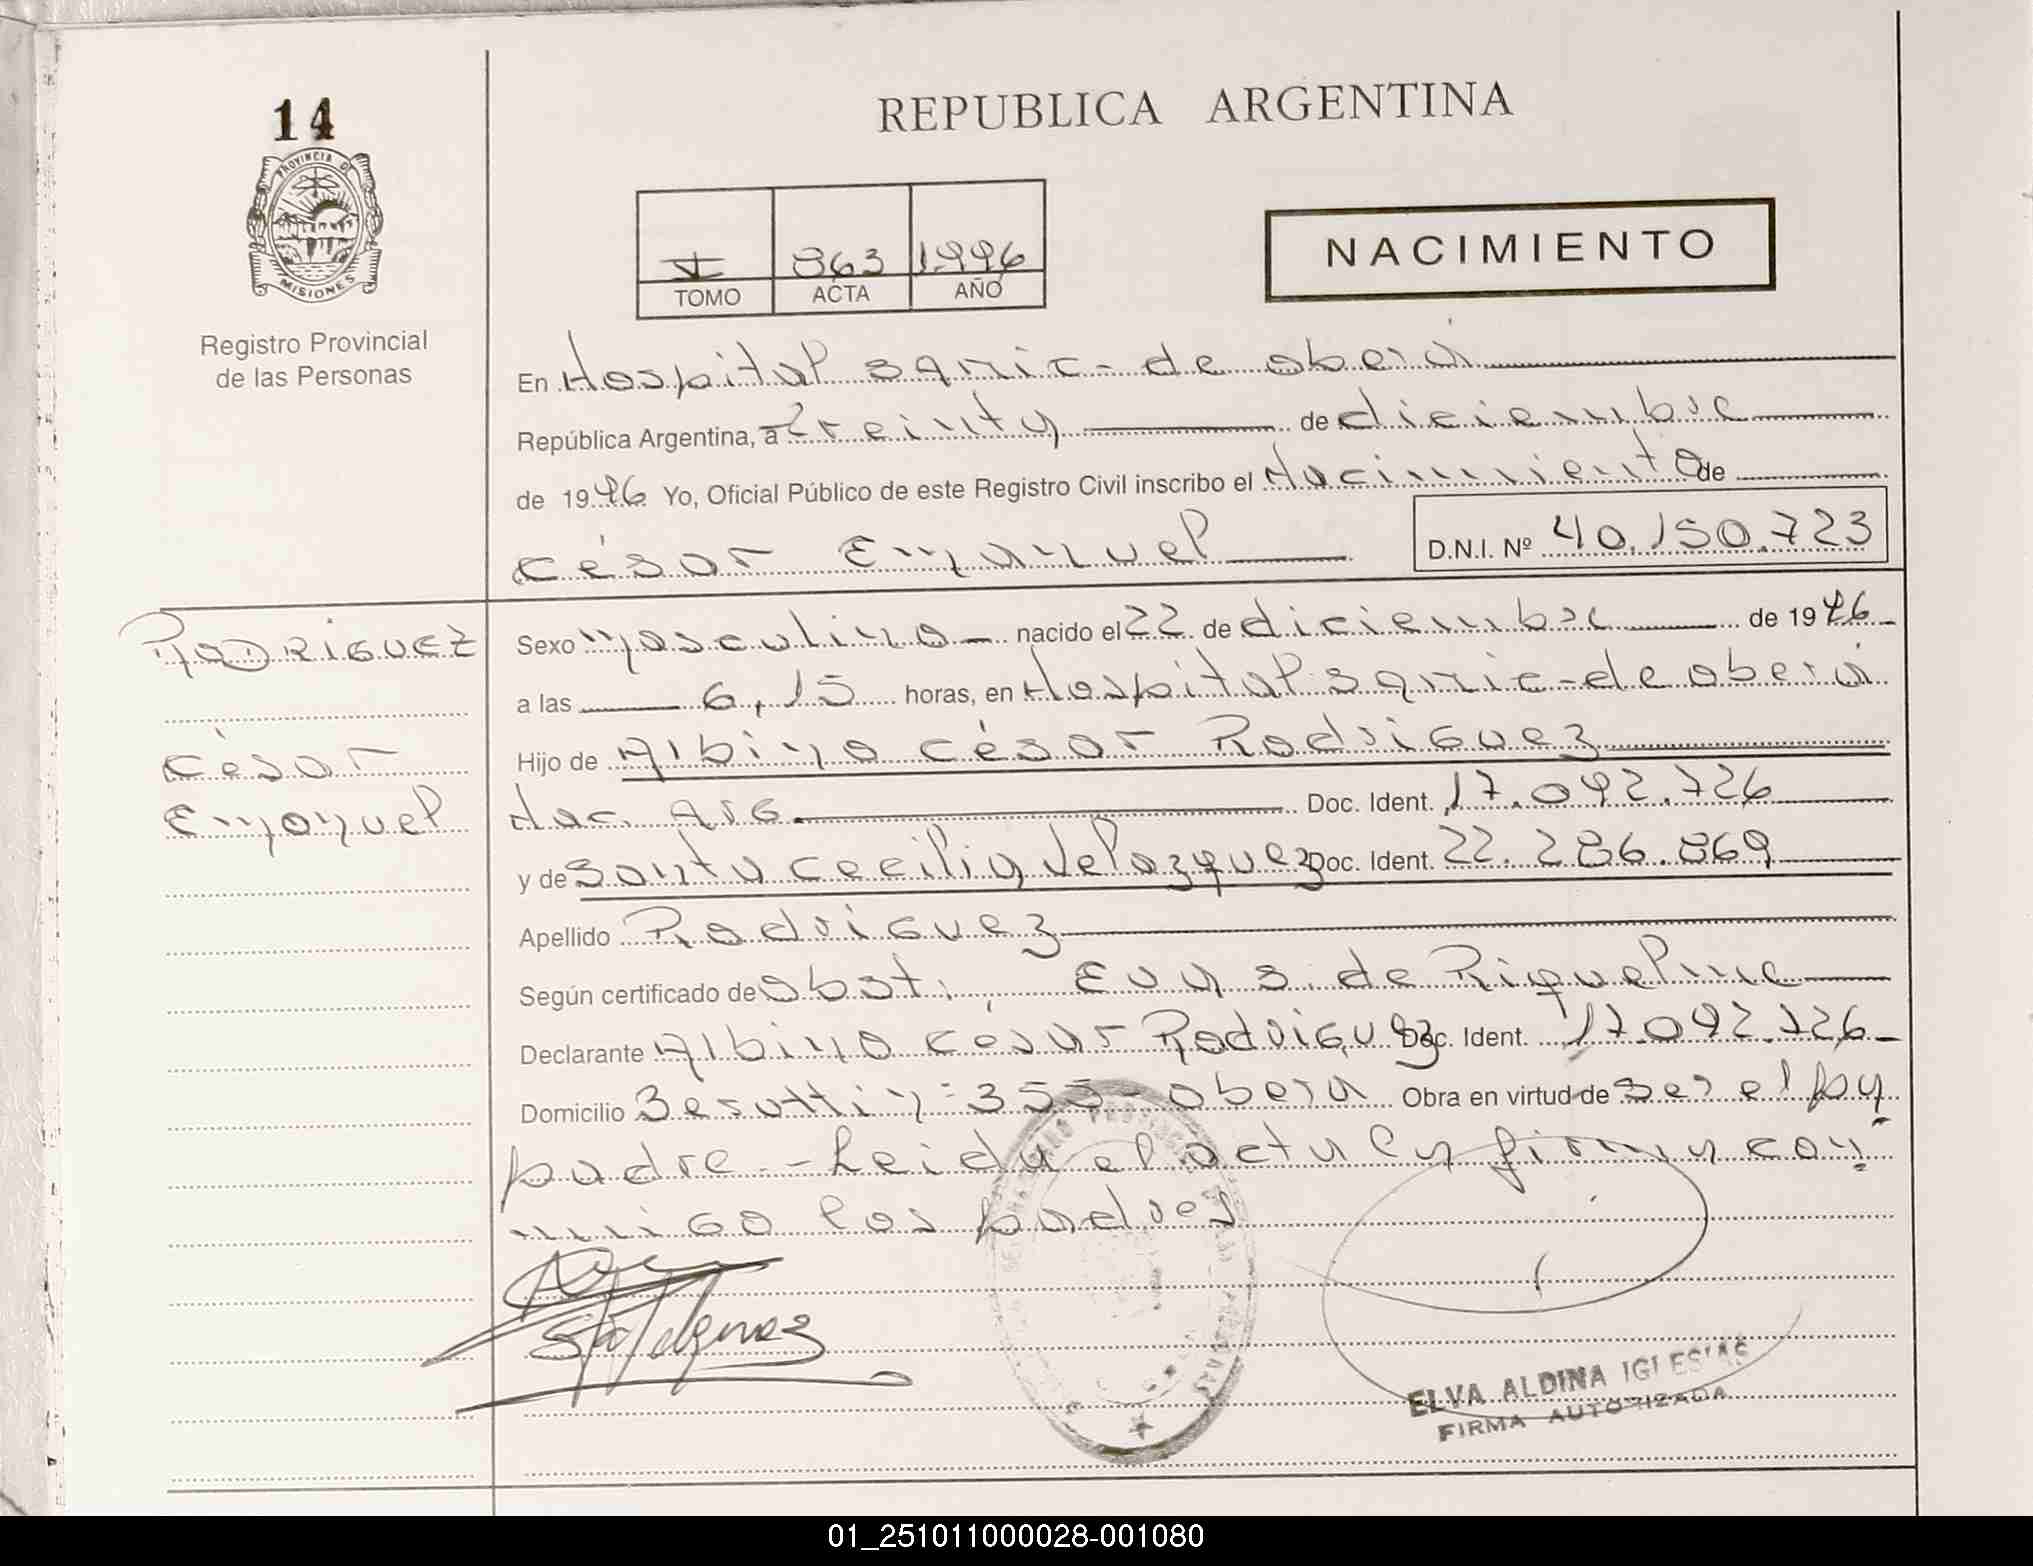 14
REPUBLICA ARGENTINA
PROVINCIA DE
MISIONES
I 863 1996
TOMO ACTA AÑO
NACIMIENTO
Registro Provincial
de las Personas
En Hospital Samic - de oberá
República Argentina, a Treinta de diciembre
de 1996 Yo, Oficial Público de este Registro Civil inscribo el Nacimiento de
César Emanuel D.N.I. Nº 40.150.723
RODRIGUEZ
César
Emanuel
Sexo Masculino nacido el 22 de diciembre de 1996
a las 6,15 horas, en Hospital Samic - de oberá
Hijo de Albino César Rodriguez
Nac. Arg. Doc. Ident. 17.092.726
y de Santa Cecilia Velazquez Doc. Ident. 22.286.869
Apellido Rodriguez
Según certificado de obst. Eva S. de Riquelme
Declarante Albino César Rodriguez Doc. Ident. 17.092.726
Domicilio Berutti nº 355 - obera Obra en virtud de ser el pa
padre - Leida el acta la firman con
migo los padres
ELVA ALDINA IGLESIAS
FIRMA AUTORIZADA
01_251011000028-001080